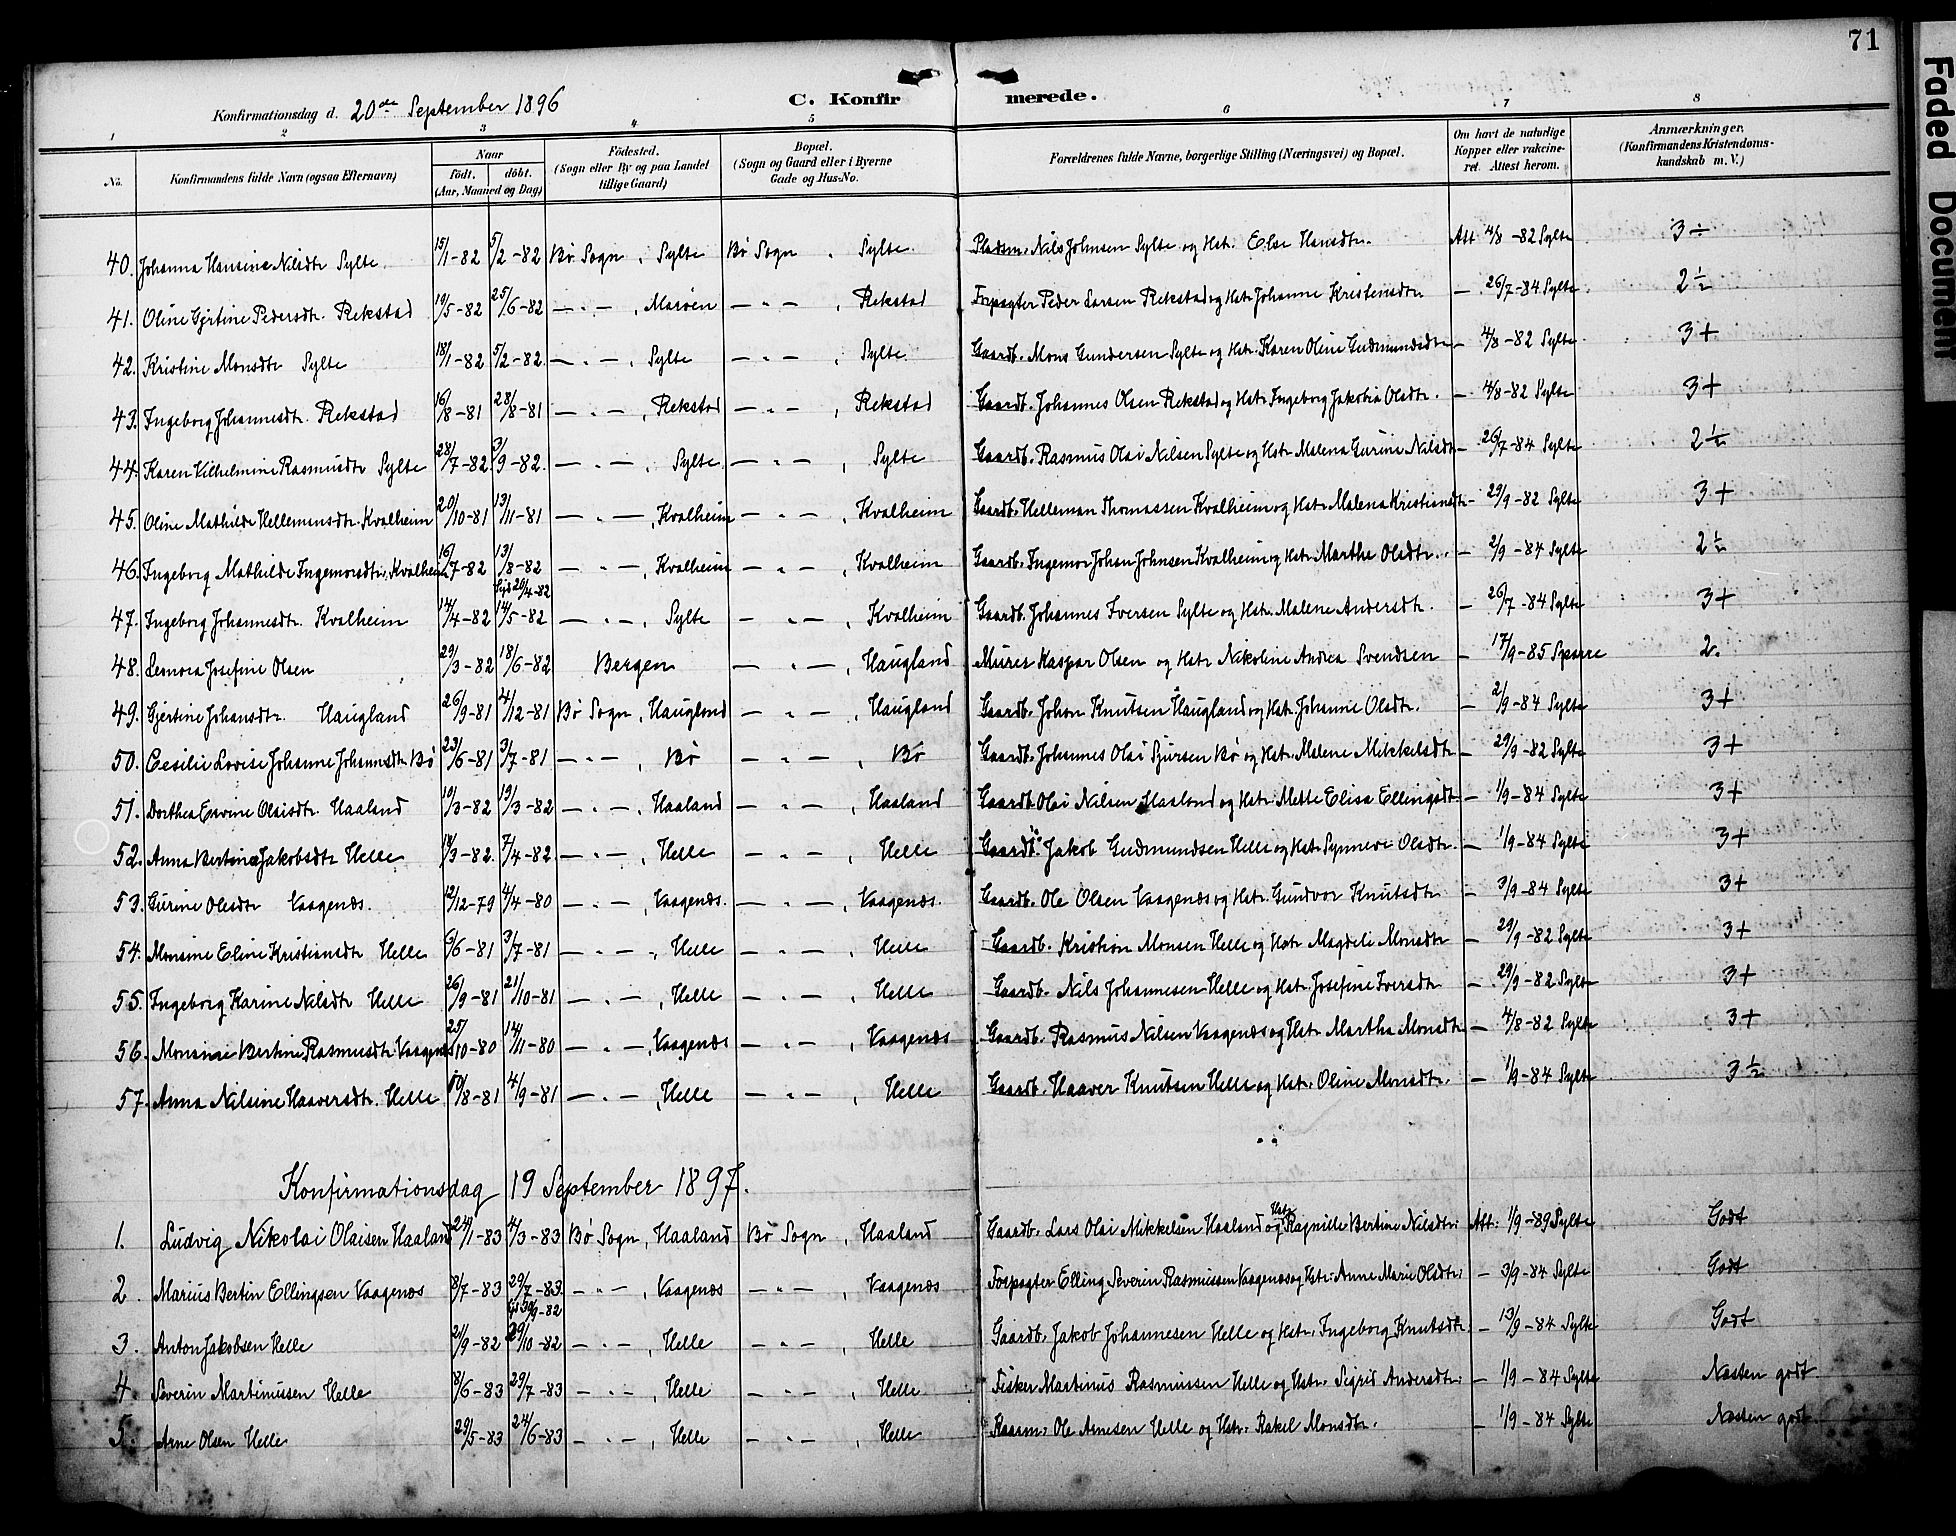 71
Faded Document
Konfirmationsdag d. 20de September 1896 C. Konfirmerede.
1 2 3 4 5 6 7 8
No. Konfirmandens fulde Navn (ogsaa Efternavn) Naar födt. döbt. (Aar, Maaned og Dag) Födested. (Sogn eller By og paa Landet tillige Gaard) Bopæl. (Sogn og Gaard eller i Byerne Gade og Hus-No. Forældrenes fulde Navne, borgerlige Stilling (Næringsvei) og Bopæl. Om havt de naturlige Kopper eller vakcineret. Attest herom. Anmærkninger. (Konfirmandens Kristendomskundskab m. V.)
40. Johanna Hansine Nilsdtr Sylte. 15/1-82 5/2-82 Bø Sogn, Sylte Bø Sogn, Sylte. Pladsm. Nils Johnsen Sylte og Hstr. Else Hansdtr. Att 4/8-82 Sylte 3÷
41. Oline Gjertine Pedersdtr. Rekstad 19/5-82 25/6-82 — " —, Marøen — " —, Rekstad Forpagter Peder Larsen Rekstad og Hstr Johanne Kristensdtr — 26/7-84 Sylte 2½
42. Kristine Monsdtr Sylte 18/1-82 5/2-82 — " —, Sylte — " —, Sylte Gaardb. Mons Gundersen Sylte og Hstr. Karen Oline Gudmundsdtr — 4/8-82 Sylte 3+
43. Ingeborg Johannesdtr. Rekstad 16/8-81 28/8-81 — " —, Rekstad — " —, Rekstad Gaardb. Johannes Olsen Rekstad og Hstr Ingeborg Jakobia Olsdtr. — 4/8-82 Sylte 3+
44. Karen Vilhelmine Rasmusdtr Sylte 28/7-82 3/9-82. — " —, Sylte — " —, Sylte Gaardb. Rasmus Olai Nilsen Sylte og Hstr Malena Gurine Nilsdtr — 26/7-84 Sylte 2½
45. Oline Mathilde Hellemensdtr. Kvalheim 20/10-81 13/11-81 — " —, Kvalheim — " —, Kvalheim Gaardb. Helleman Thomassen Kvalheim og Hstr Malena Kristiansdtr — 29/9-82 Sylte 3+
46. Ingeborg Mathilde Ingemorsdtr, Kvalheim 16/7-82 13/8-82 — " —, Kvalheim — " —, Kvalheim Gaardb. Ingemor Johan Johnsen Kvalheim og Hstr. Marthe Olsdtr. — 2/9-84 Sylte 2½
47. Ingeborg Johannesdtr. Kvalheim 14/4-82 14/5-82 — " —, Sylte — " —, Kvalheim Gaardb. Johannes Iversen Sylte og Hstr. Malene Andersdtr. — 26/7-84 Sylte 3+
48. Leonora Josefine Olsen 29/3-82 18/6-82 Bergen — " —, Haugland Murer Kaspar Olsen og Hstr Nikoline Andrea Svendsen — 17/9-85 Sparre 2.
49. Gjertine Johansdtr. Haugland 26/9-81 4/12-81 Bø Sogn, Haugland — " —, Haugland Gaardb. Johan Knutsen Haugland og Hstr. Johanne Olsdtr. — 2/9-84 Sylte 3+
50. Cesilie Lovise Johanne Johannesdtr Bø 23/6-81 3/7-81 — " —, Bø — " —, Bø Gaardb. Johannes Olai Sjursen Bø og Hstr. Malene Mikkelsdtr — 29/9-82 Sylte 3+
51. Dorthea Ervine Olaisdtr Haaland 10/3-82 19/3-82 — " —, Haaland — " —, Haaland Gaardb. Olai Nilsen Haaland og Hstr. Mette Elisa Ellingsdtr — 1/9-84 Sylte 3+
52. Anna Bertine Jakobsdtr Helle 14/3-82. 7/4-82 — " —, Helle — " —, Helle Gaardb. Jakob Gudmundsen Helle og Hstr Synneve Olsdtr. — 1/9-84 Sylte 3+
53. Gurine Olsdtr Vaagenæs. 12/12-79 4/4-80 — " —, Vaagenæs. — " —, Vaagenæs. Gaardb. Ole Olsen Vaagenæs og Hstr. Gundvor Knutsdtr — 3/9-84 Sylte 3+
54. Monsine Eline Kristiansdtr Helle 6/6-81 3/7-81 — " —, Helle — " —, Helle Gaardb. Kristian Monsen Helle og Hstr Magdeli Monsdtr — 29/9-82 Sylte 3+
55. Ingeborg Karine Nilsdtr Helle 26/9-81 21/10-81 — " —, Helle — " —, Helle Gaardb. Nils Johannesen Helle og Hstr. Josefine Iversdtr — 29/9-82 Sylte 3+
56. Monsine Bertine Rasmusdtr. Vaagenæs 25/10-80 14/11-80 — " —, Vaagenæs — " —, Vaagenæs Gaardb. Rasmus Nilsen Vaagenæs og Hstr. Martha Monsdtr — 4/8-82 Sylte 3+
57. Anna Nilsine Haaversdtr. Helle 10/8-81 4/9-81 — " —, Helle — " —, Helle Gaardb. Haaver Knutsen Helle og Hstr. Oline Monsdtr. — 1/9-84 Sylte 3½
Konfirmationsdag 19 September 1897.
1. Ludvig Nikolai Olaisen Haaland 24/1-83 4/3-83 Bø Sogn, Haaland Bø Sogn, Haaland Gaardb. Lars Olai Mikkelsen Haaland og Hstr Ragnille Bertine Nilsdtr. Att. 1/9-89 Sylte Godt
2. Marius Bertin Ellingsen Vaagenæs 8/7-83 29/7-83 — " —, Vaagenæs — " —, Vaagenæs Forpagter Elling Severin Rasmussen Vaagenæs og Hstr. Anne Marie Olsdtr. — 3/9-84 Sylte Godt
3. Anton Jakobsen Helle 21/9-82 29/10-82 — " —, Helle — " —, Helle Gaardb. Jakob Johannesen Helle og Hstr. Ingeborg Knutsdtr. — 13/9-84 Sylte Godt
4. Severin Martinussen Helle 8/6-83 29/7-83 — " —, Helle — " —, Helle Fisker Martinus Rasmussen Helle og Hstr. Sigrid Andersdtr. — 1/9-84 Sylte Næsten godt
5. Arne Olsen Helle 29/5-83 24/6-83 — " —, Helle — " —, Helle Ole Arnesen Helle og Hstr. Rakel Monsdtr. — 1/9-84 Sylte Næsten godt